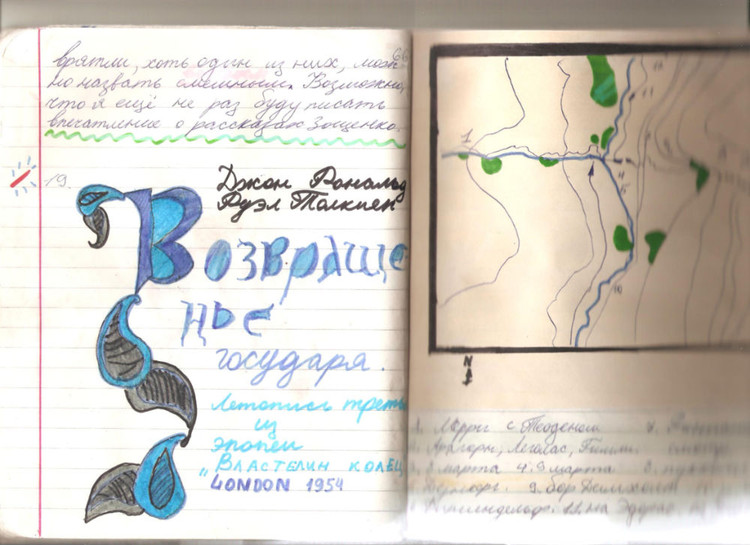 66
врятли, хоть один из них, мож-
но назвать смешным. Возможно,
что я ещё не раз буду писать
впечатление о рассказах Зощенко.
19.
Джон Рональд
Руэл Толкиен
Возвраще
нье
государя.
Летопись третья
из
эпопеи
„Властелин колец
LONDON 1954
1
N
1. Мерри с Теоденом 7.
Арагорн, Леголас, Гимли.
3. 8 марта 4. 9 марта 8.
9. бор Димхолт
11. на Эдорас